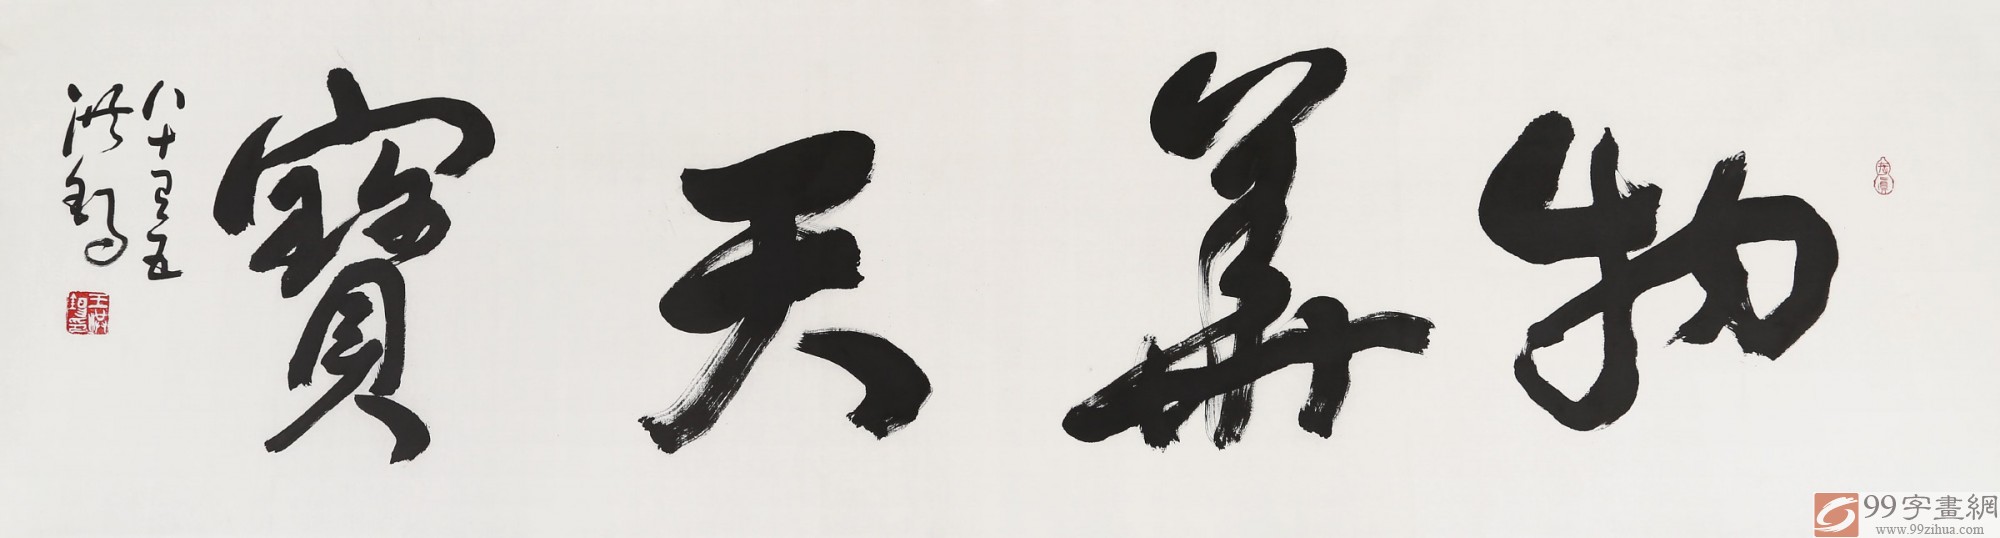 物華天寶
八十又五
洪錫
王洪錫印
99字畫網
www.99zihua.com